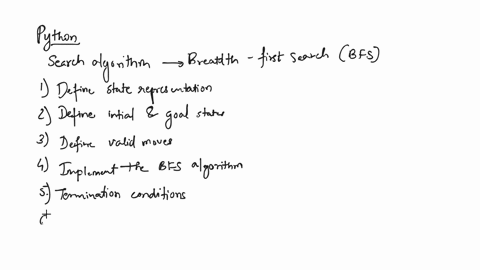 Python
Search algorithm → Breadth - first search (BFS)
1) Define state representation
2) Define intial & goal states
3) Define valid moves
4) Implement the BFS algorithm
5) Termination conditions